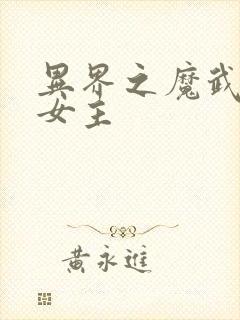 異界之魔武
女主
黃永進